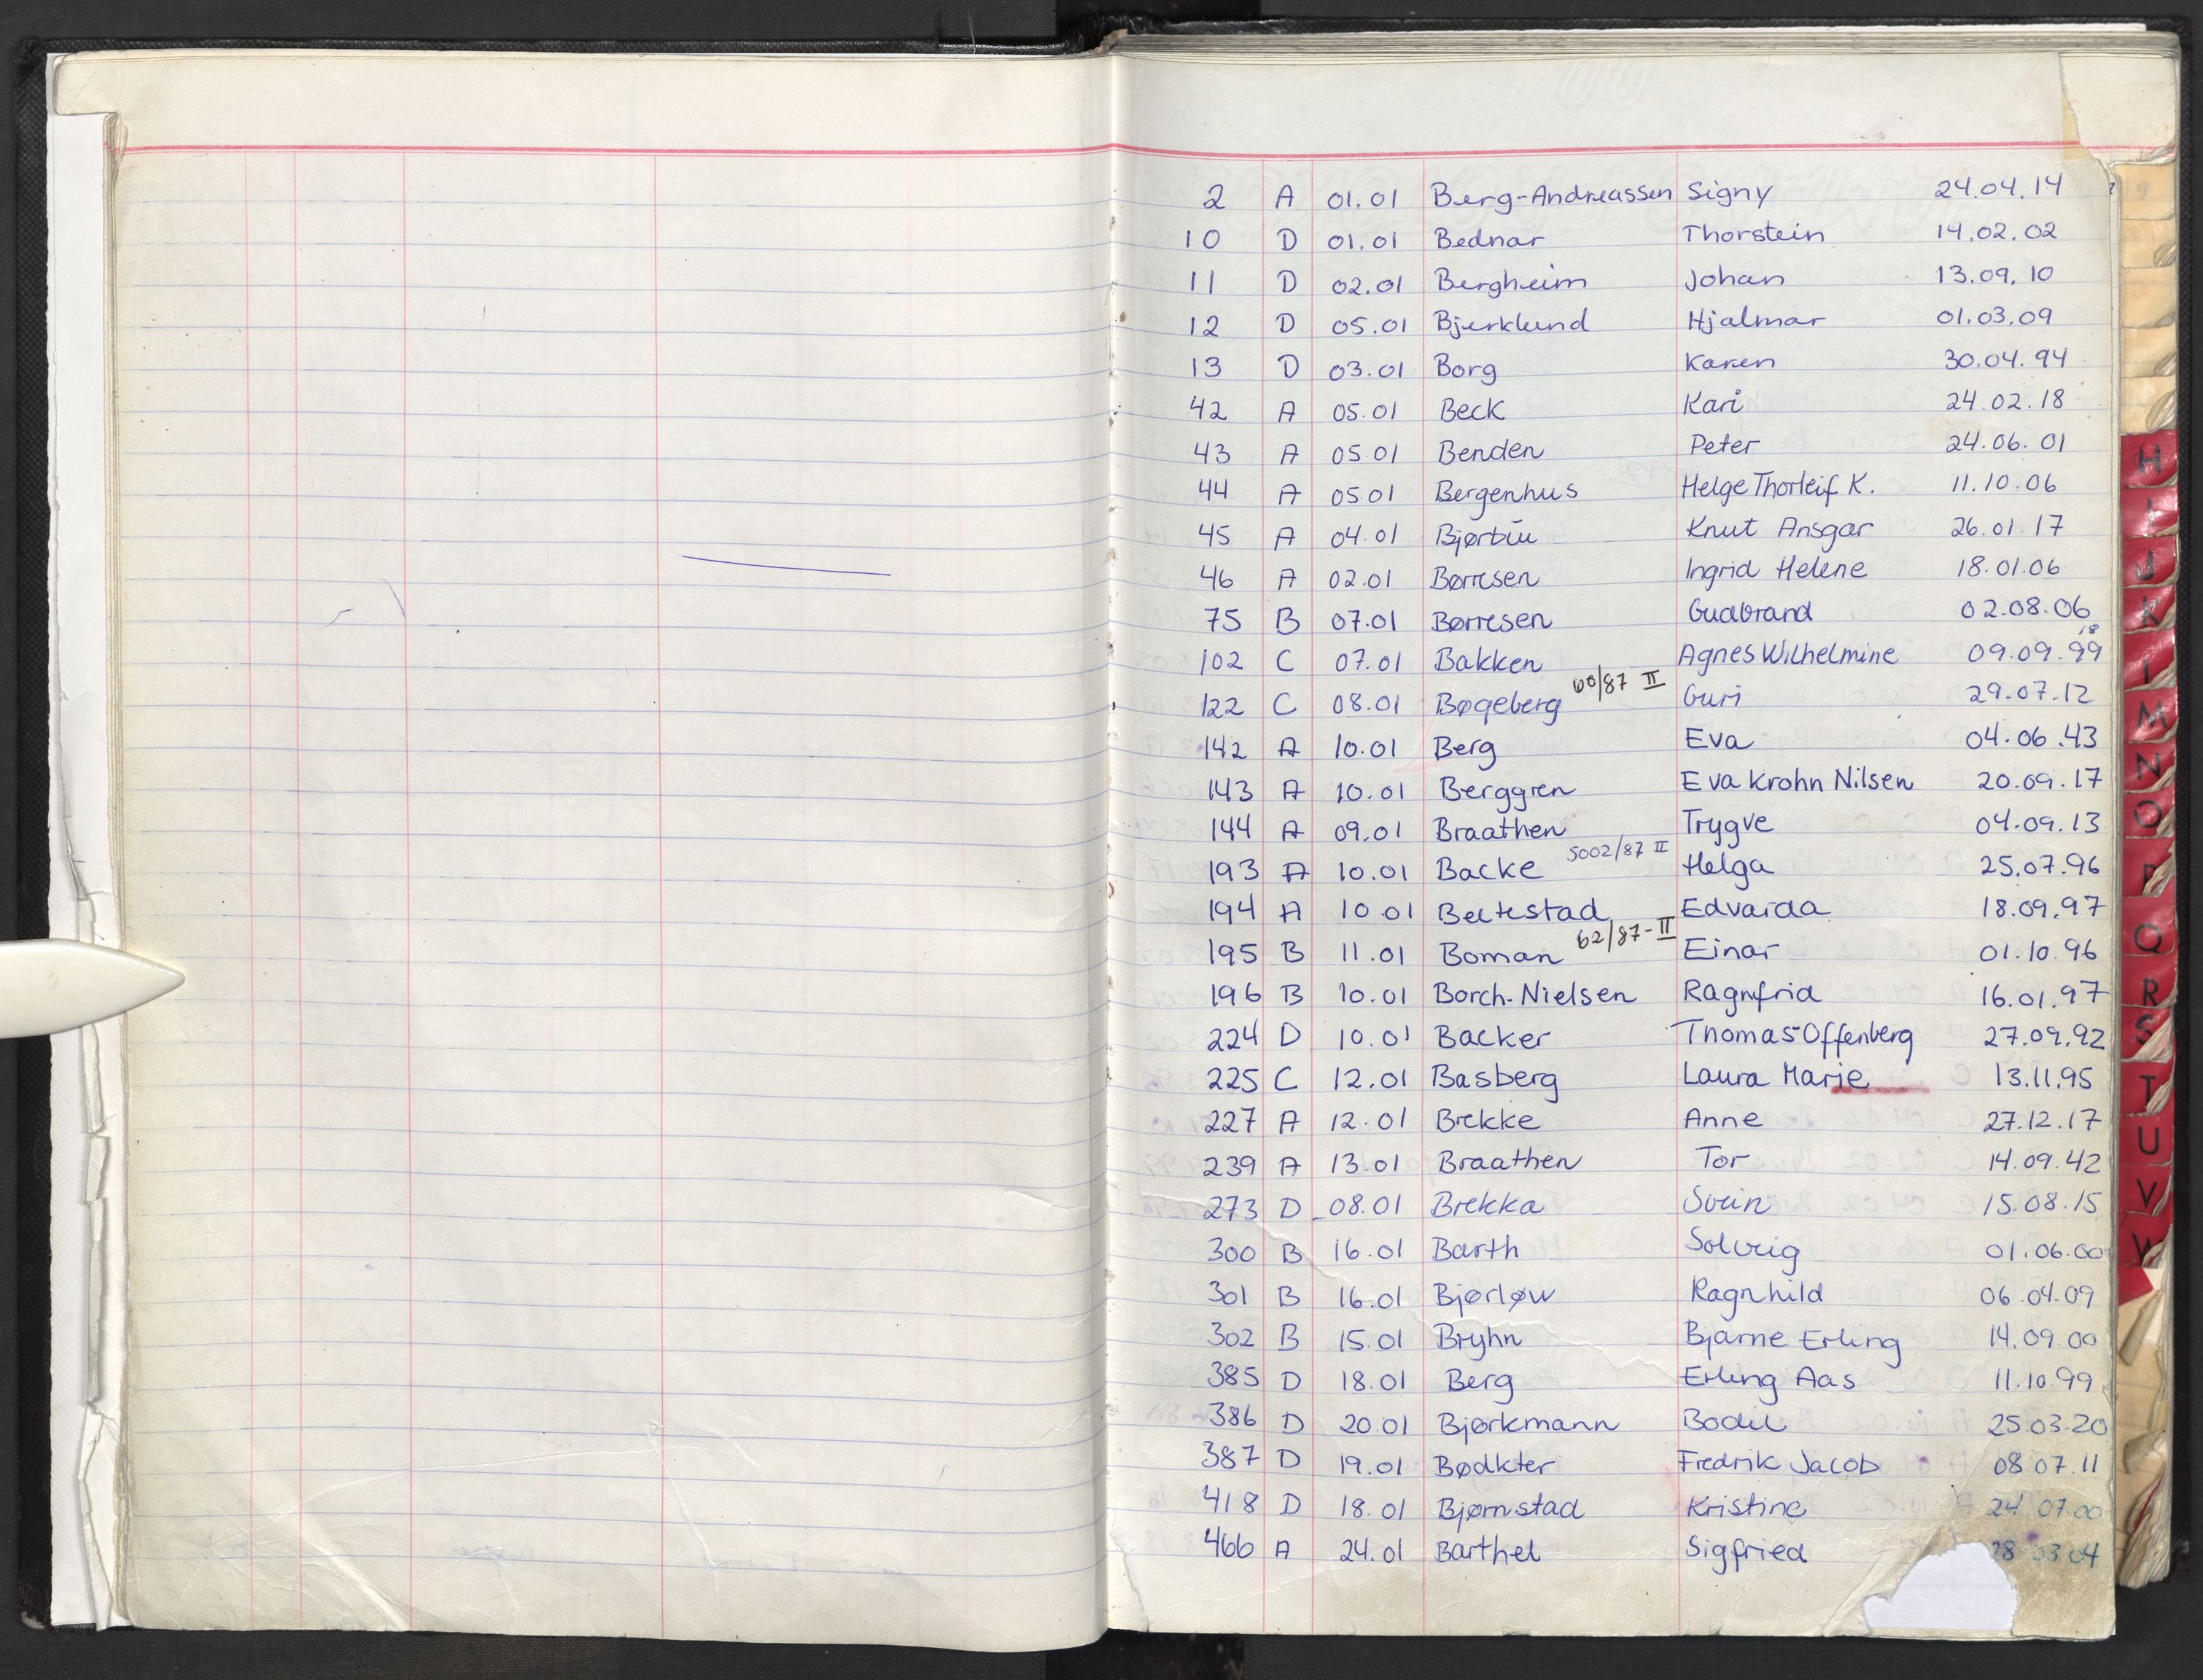 2 A 01.01 Berg-Andreassen Signy 24.04.14
10 D 01.01 Bednar Thorstein 14.02.02
11 D 02.01 Bergheim Johan 13.09.10
12 D 05.01 Bjerklund Hjalmar 01.03.09
13 D 03.01 Borg Karen 30.04.94
42 A 05.01 Beck Kari 24.02.18
43 A 05.01 Benden Peter 24.06.01
44 A 05.01 Bergenhus Helge Thorleif K. 11.10.06
45 A 04.01 Knut Ansgar 26.01.17
46 A 02.01 Børresen Ingrid Helene 18.01.06
75 B 07.01 Børresen Gudbrand 02.08.06
18
102 C 07.01 Bakken Agnes Wilhelmine 09.09.99
122 C 08.01 Bøgeberg 60/87 II Guri 29.07.12
142 A 10.01 Berg Eva 04.06.43
143 A 10.01 Berggren Eva Krohn Nilsen 20.09.17
144 A 09.01 Braathen Trygve 04.09.13
193 A 10.01 Backe 5002/87 II Helga 25.07.96
194 A 10.01 Edvarda 18.09.97
195 B 11.01 Boman 62/87-II Einar 01.10.96
196 B 10.01 Borch-Nielsen Ragnfrid 16.01.97
224 D 10.01 Backer Thomas Offenberg 27.09.92
225 C 12.01 Basberg Laura Marie 13.11.95
227 A 12.01 Brekke Anne 27.12.17
239 A 13.01 Braathen Tor 14.09.42
273 D 08.01 Brekka Svein 15.08.15
300 B 16.01 Barth Solveig 01.06.00
301 B 16.01 Bjørløw Ragnhild 06.04.09
302 B 15.01 Bryhn Bjarne Erling 14.09.00
385 D 18.01 Berg Erling Aas 11.10.99
386 D 20.01 Bjørkmann Bodil 25.03.20
387 D 19.01 Bødkter Fredrik Jacob 08.07.11
418 D 18.01 Bjørnstad Kristine 24.07.00
466 A 24.01 Barthel Sigfried 28.03.04
H
I
J
K
M
N
O
P
Q
R
S
T
U
V
W